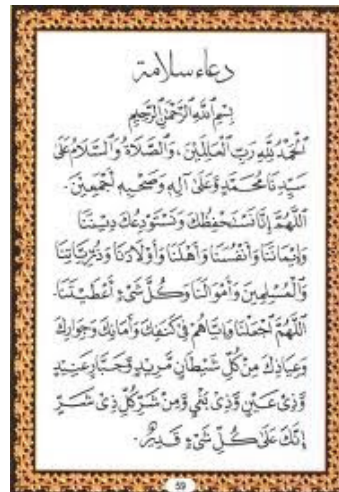 دعاء سلامة
بِسْمِ اللهِ الرَّحْمٰنِ الرَّحِيْمِ
اَلْحَمْدُ لِلّٰهِ رَبِّ الْعَالَمِيْنَ، وَالصَّلَاةُ وَالسَّلَامُ عَلَى
سَيِّدِنَا مُحَمَّدٍ وَّعَلَى آلِهِ وَصَحْبِهِ أَجْمَعِيْنَ.
اَللّٰهُمَّ إِنَّا نَسْتَحْفِظُكَ وَنَسْتَوْدِعُكَ دِيْنَنَا
وَإِيْمَانَنَا وَأَنْفُسَنَا وَأَهْلَنَا وَأَوْلَادَنَا وَذُرِّيَّاتِنَا
وَالْمُسْلِمِيْنَ وَأَمْوَالَنَا وَكُلَّ شَيْءٍ أَعْطَيْتَنَا.
اَللّٰهُمَّ اجْعَلْنَا وَإِيَّاهُمْ فِيْ كَنَفِكَ وَأَمَانِكَ وَجِوَارِكَ
وَعِيَاذِكَ مِنْ كُلِّ شَيْطَانٍ مَّرِيْدٍ وَّجَبَّارٍ عَنِيْدٍ
وَّذِيْ عَيْنٍ وَّذِيْ بَغْيٍ وَّمِنْ شَرِّ كُلِّ ذِيْ شَرٍّ
إِنَّكَ عَلَى كُلِّ شَيْءٍ قَدِيْرٌ.
59